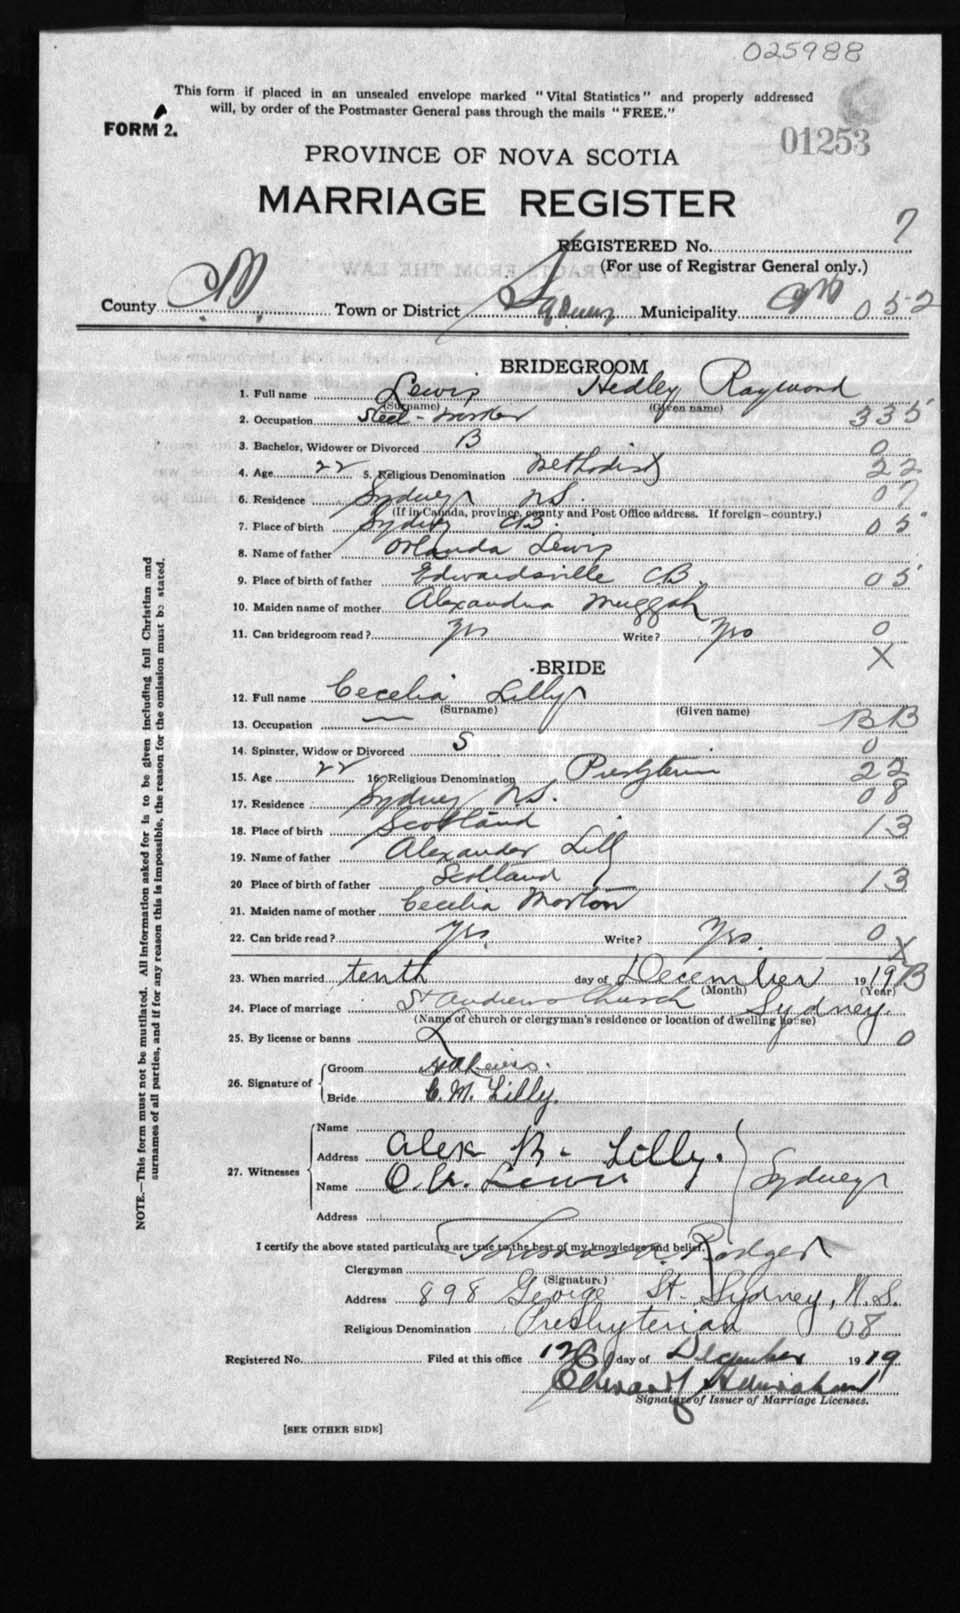 025988
This form if placed in an unsealed envelope marked "Vital Statistics" and properly addressed
will, by order of the Postmaster General pass through the mails "FREE."
FORM 2.
01253
PROVINCE OF NOVA SCOTIA
MARRIAGE REGISTER
REGISTERED No. 7
(For use of Registrar General only.)
County CB. Town or District Sydney Municipality CB 052
BRIDEGROOM
1. Full name Lewis Hedley Raymond
(Surname) (Given name)
2. Occupation Steel-worker 335
3. Bachelor, Widower or Divorced B 0
4. Age 22 5. Religious Denomination Methodist 22
6. Residence Sydney N.S. 07
(If in Canada, province, county and Post Office address. If foreign—country.)
7. Place of birth Sydney CB. 05
8. Name of father Orlanda Lewis
9. Place of birth of father Edwardsville CB. 05
10. Maiden name of mother Alexandra Muggah
11. Can bridegroom read? Yes Write? Yes 0
X
BRIDE
12. Full name Cecelia Lilly
(Surname) (Given name)
13. Occupation — BB
14. Spinster, Widow or Divorced S 0
15. Age 22 16. Religious Denomination Presbyterian 22
17. Residence Sydney N.S. 08
18. Place of birth Scotland 13
19. Name of father Alexander Lilly
20 Place of birth of father Scotland 13
21. Maiden name of mother Cecelia Morton
22. Can bride read? Yes. Write? Yes. 0
X
23. When married tenth day of December 1919 B
(Month) (Year)
24. Place of marriage St Andrews Church Sydney.
(Name of church or clergyman's residence or location of dwelling house)
25. By license or banns L 0
26. Signature of
Groom Lewis.
Bride C. M. Lilly.
27. Witnesses
Name
Address Alex B. Lilly.
Name O. A. Lewis Sydney
Address
I certify the above stated particulars are true to the best of my knowledge and belief.
Clergyman Thomas Rodger
(Signature)
Address 898 George St. Sydney, N.S.
Religious Denomination Presbyterian 08
Registered No. Filed at this office 12 day of December 1919
Edward
Signature of Issuer of Marriage Licenses.
[SEE OTHER SIDE]
NOTE.—This form must not be mutilated. All information asked for is to be given including full Christian and
surnames of all parties, and if for any reason this is impossible, the reason for the omission must be stated.